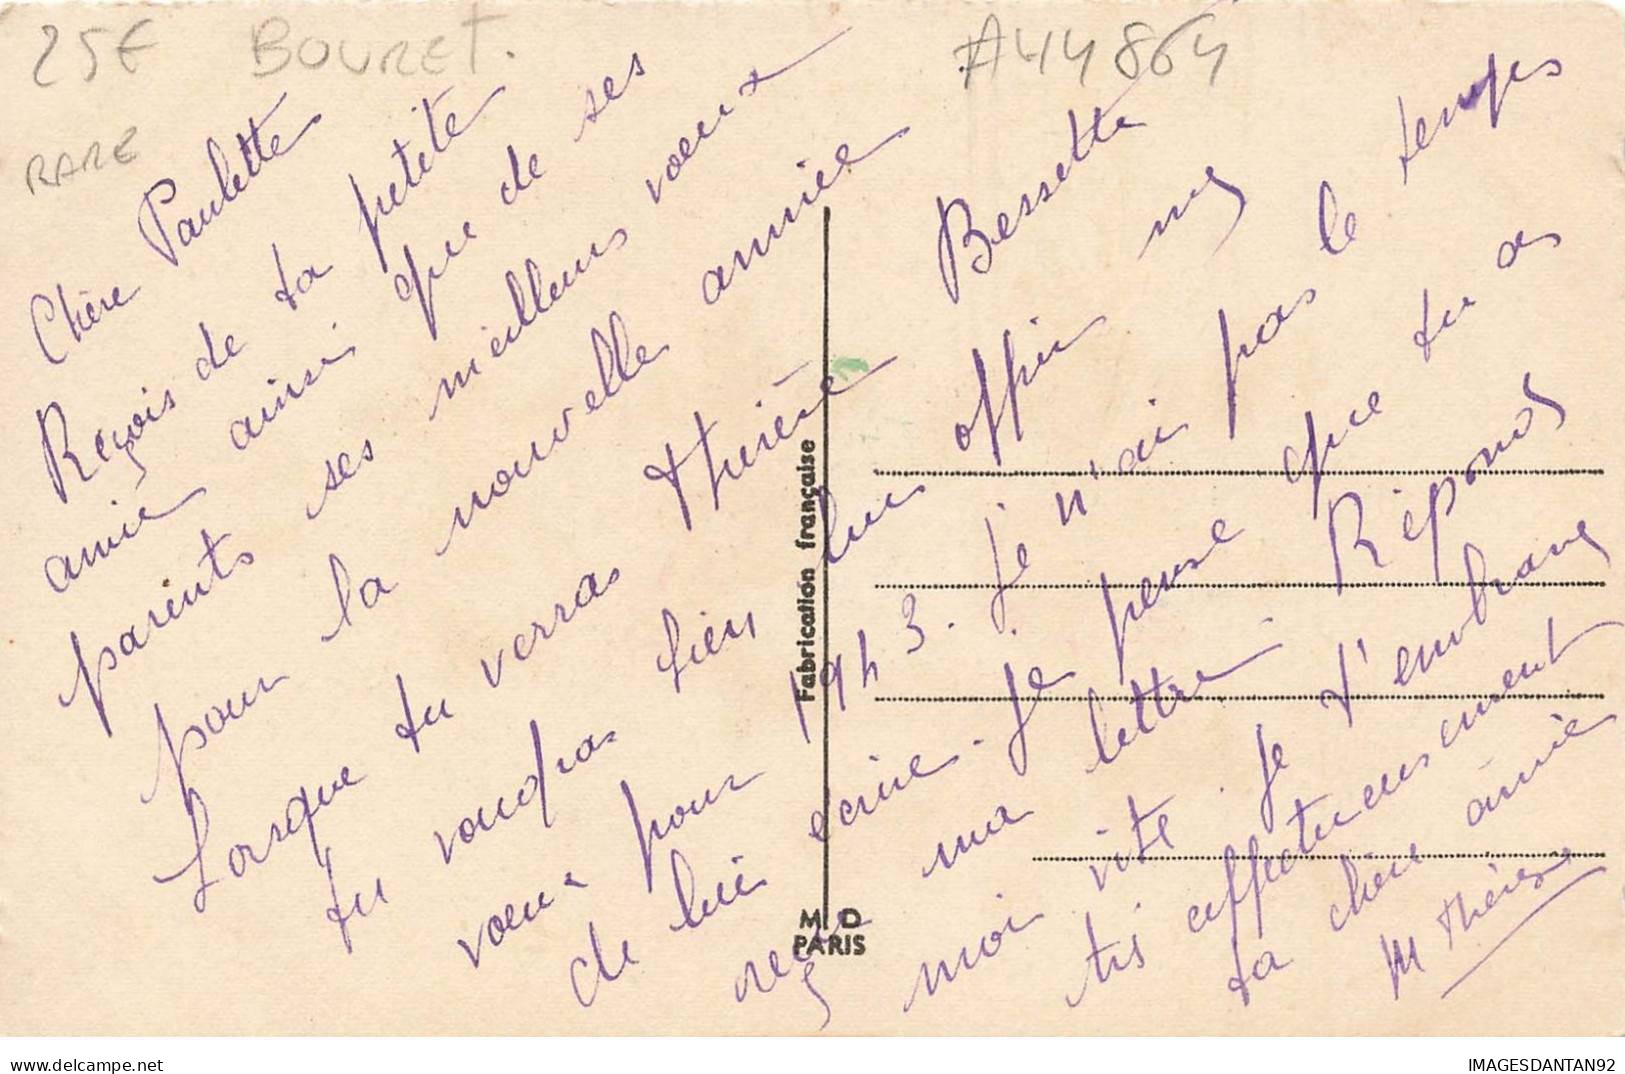 25€ BOURET.
A44864
RARE
Chère Paulette
Reçois de ta petite
amie ainsi que de ses
parents ses meilleurs voeux
pour la nouvelle année
Lorsque tu verras thérèse Bessette
tu voudras bien lui offrir mes
voeux pour 1943. Je n'ai pas le temps
de lui écrire. Je pense que tu as
reçu ma lettre. Réponds
moi vite. Je t'embrasse
très affectueusement
ta chère amie
M Thérèse
Fabrication française
M D
PARIS
delcampe.net
IMAGESDANTAN92